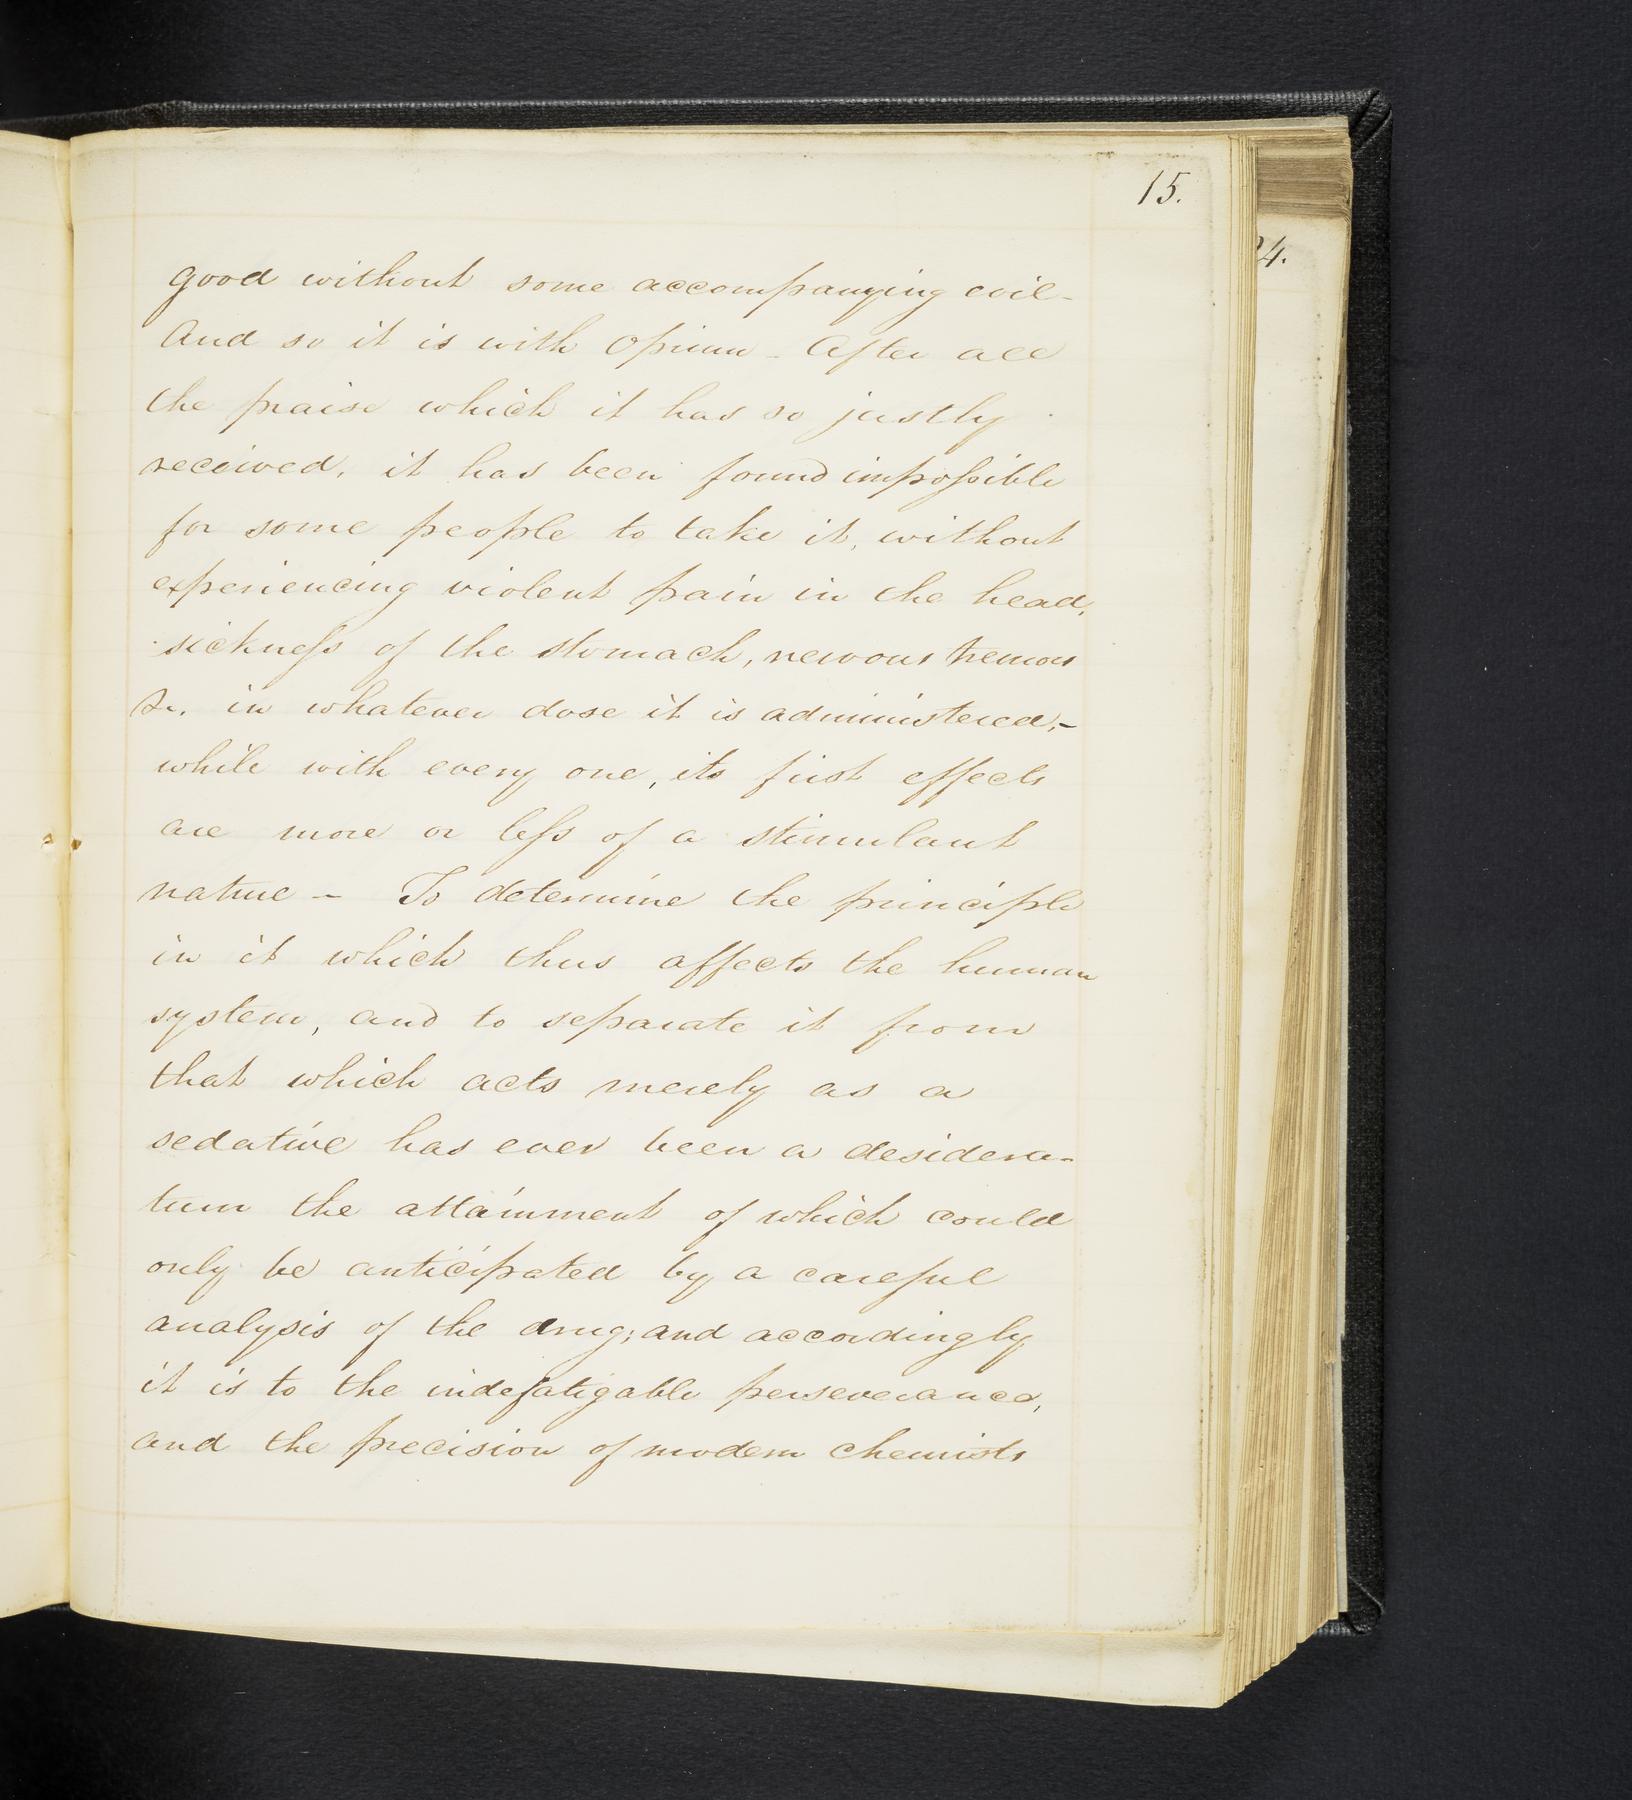 15.
24.
good without some accompanying evil -
And so it is with Opium - After all
the praise which it has so justly
received, it has been found impossible
for some people to take it, without
experiencing violent pain in the head,
sickness of the stomach, nervous tremors
&c. in whatever dose it is administered, -
while with every one, its first effects
are more or less of a stimulant
nature - To determine the principle
in it which thus affects the human
system, and to separate it from
that which acts merely as a
sedative has ever been a desidera-
tum the attainment of which could
only be anticipated by a careful
analysis of the drug; and accordingly
it is to the indefatigable perseverance,
and the precision of modern chemists